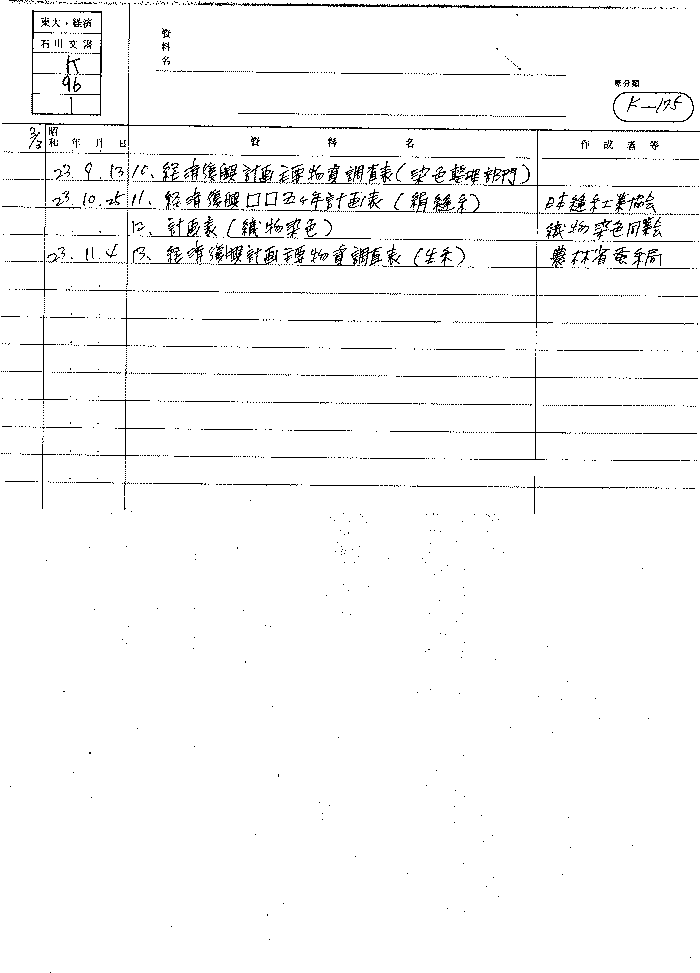 東大・経済
石川文書
K
96
1
資料名
原分類
K-175
3/3 昭和 年 月 日 資料名 作成者等
23. 9. 13 10. 経済復興計画主要物資調査表(染色整理部門)
23. 10. 25 11. 経済復興口口五ヶ年計画表(絹縫糸) 日本縫糸工業協会
. . 12. 計画表(織物染色) 織物染色同業会
23. 11. 4 13. 経済復興計画主要物資調査表(生糸) 農林省蚕糸局